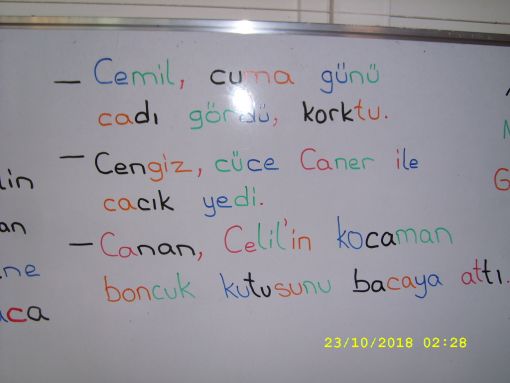 — Cemil, cuma günü
cadı gördü, korktu.
— Cengiz, cüce Caner ile
cacık yedi.
— Canan, Celil'in kocaman
boncuk kutusunu bacaya attı.
23/10/2018 02:28